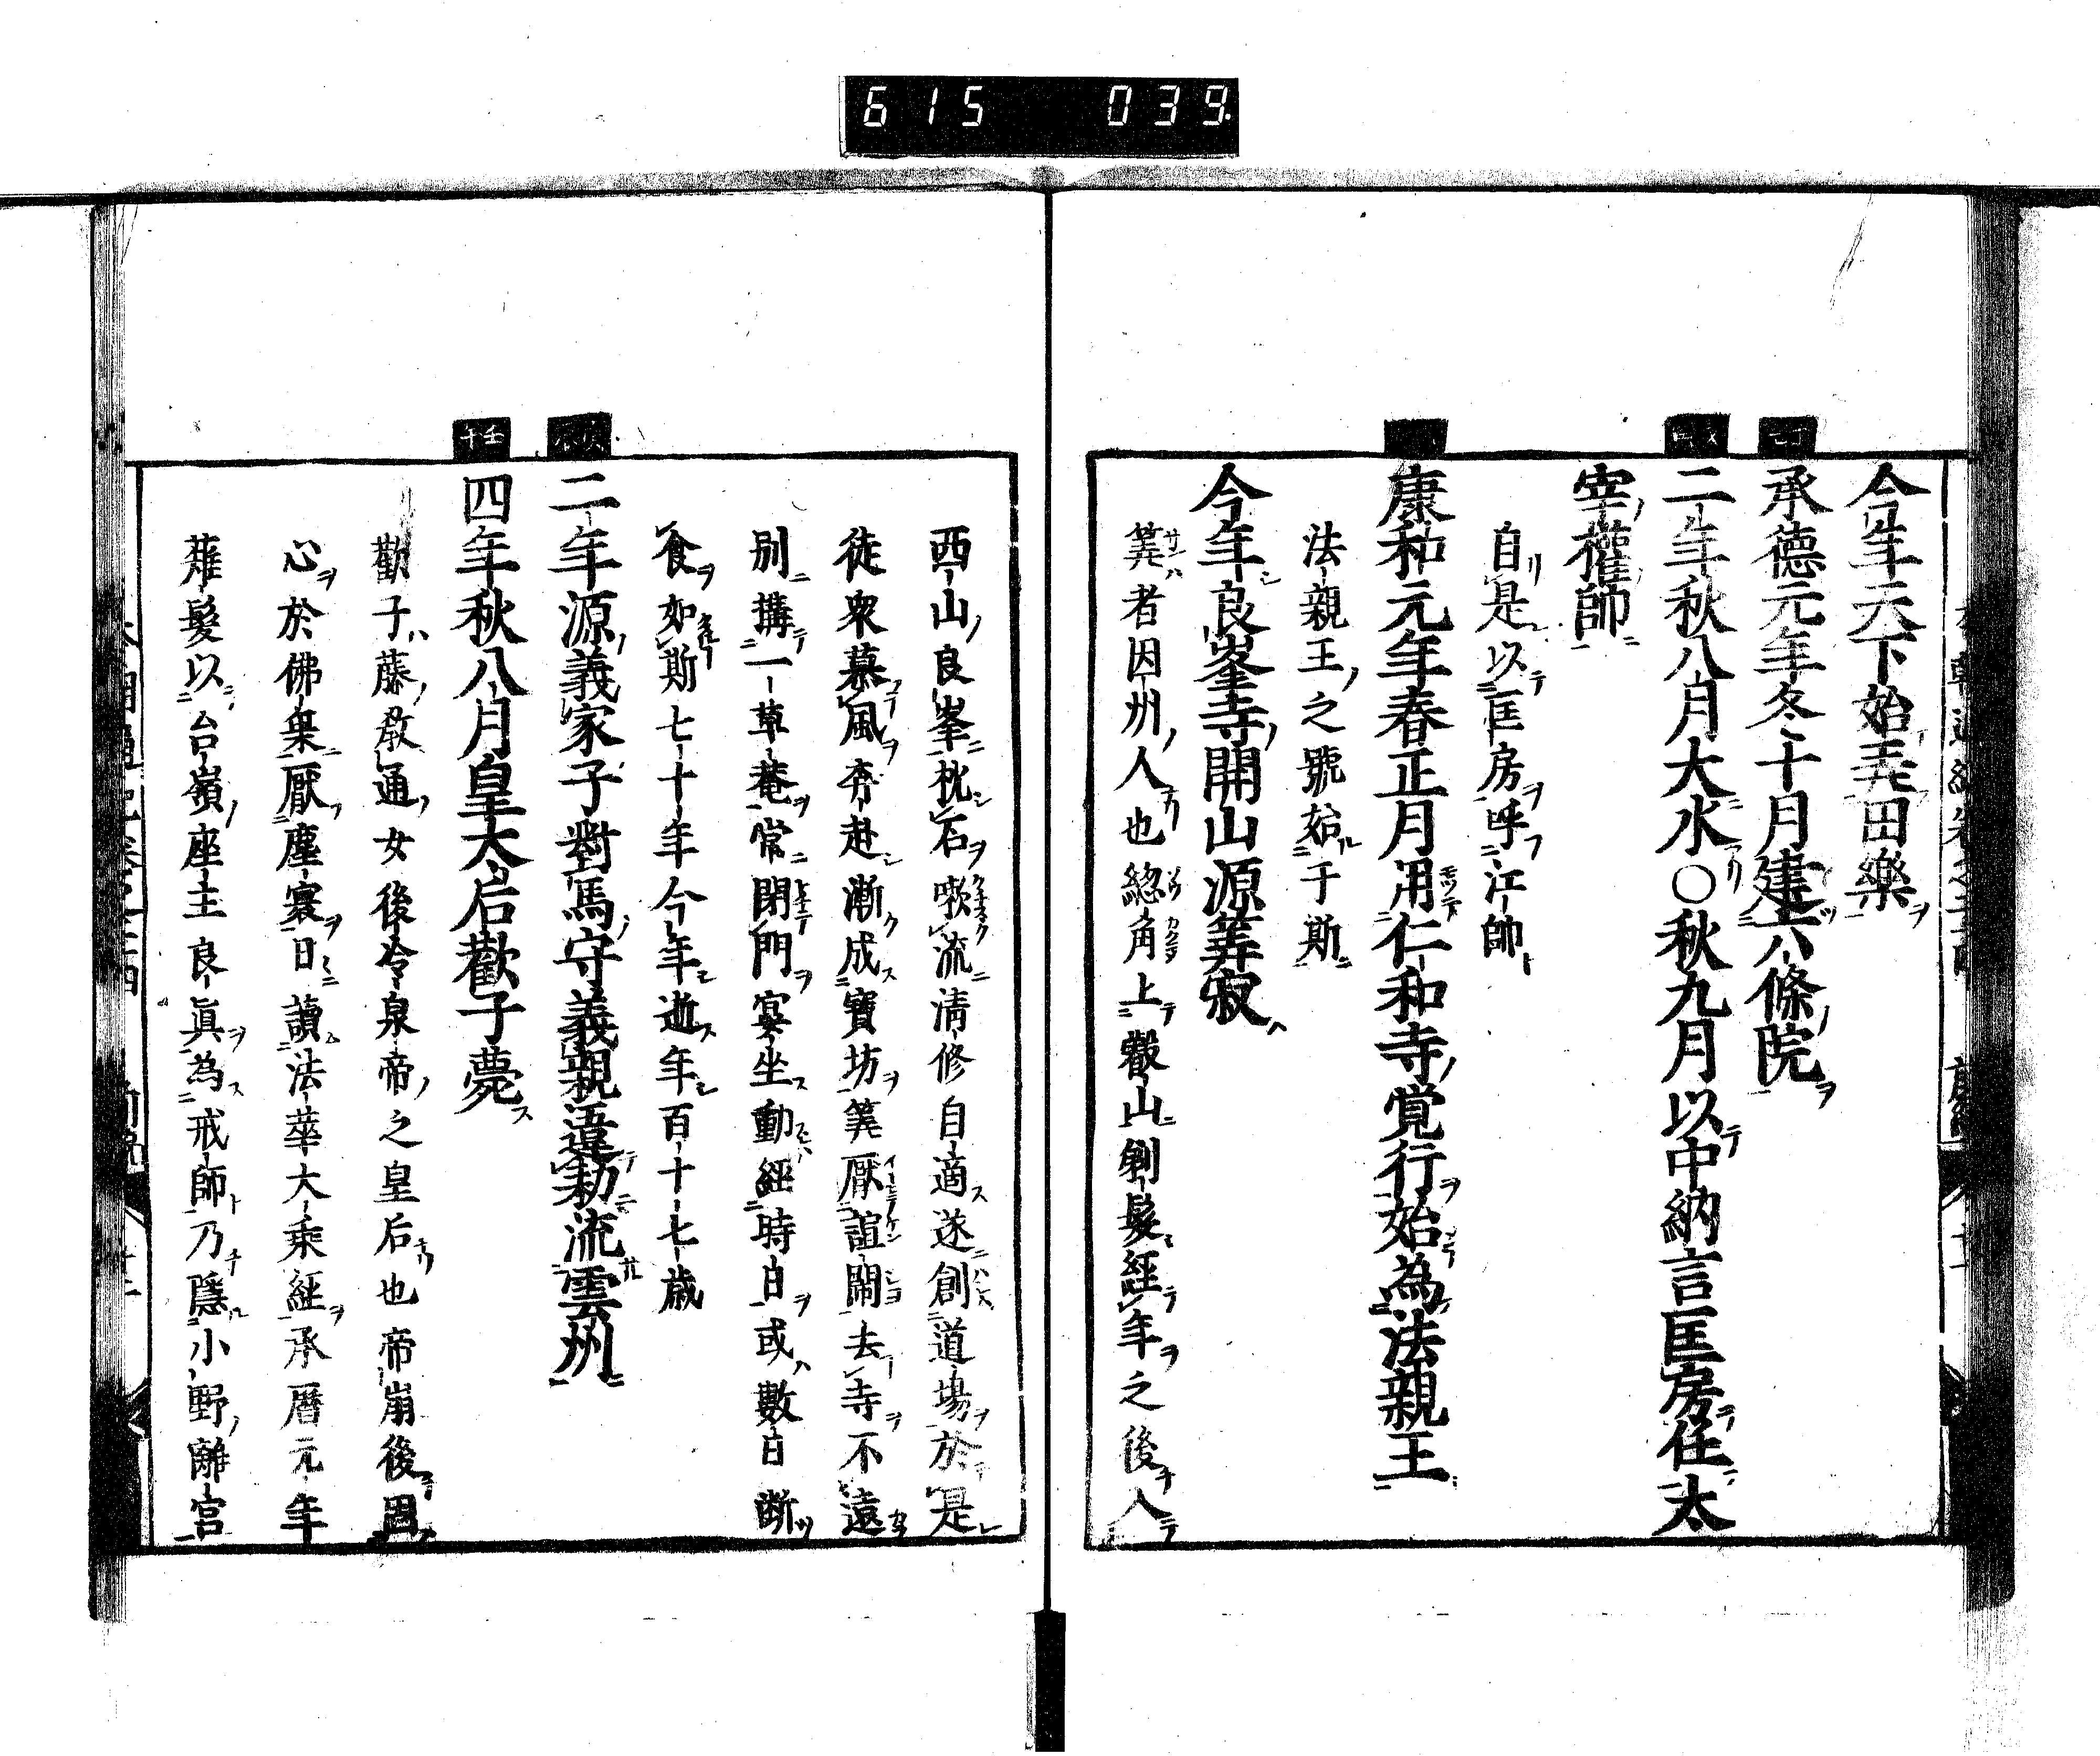 615 039
今年天下始弄田樂
承德元年冬十月建六條院
二年秋八月大水〇秋九月以中納言匡房任太
宰權帥
自是以匡房呼江帥
康和元年春正月用仁和寺覚行始為法親王
法親王之號始于斯
今年良峯寺開山源筭寂
筭者因州人也總角上叡山剃髮經年之後入
西山良峯枕石嗽流清修自適遂創道場於是
徒衆慕風奔赴漸成寶坊筭厭諠鬧去寺不遠
別搆一草菴常閉門宴坐動經時日或數日断
食如斯七十年今年逝年百十七歳
二年源義家子對馬守義親違勅流雲州
四年秋八月皇太后歡子薨
歡子藤教通女後冷泉帝之皇后也帝崩後
心於佛乗厭塵寰日讀法華大乗經承暦元年
薙髮以台嶺座主良眞為戒師乃隱小野離宮